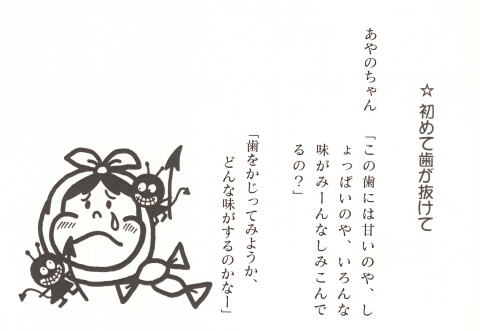 ☆ 初めて歯が抜けて
あやのちゃん 「この歯には甘いのや、し
ょっぱいのや、いろんな
味がみーんなしみこんで
るの？」
「歯をかじってみようか、
どんな味がするのかなー」